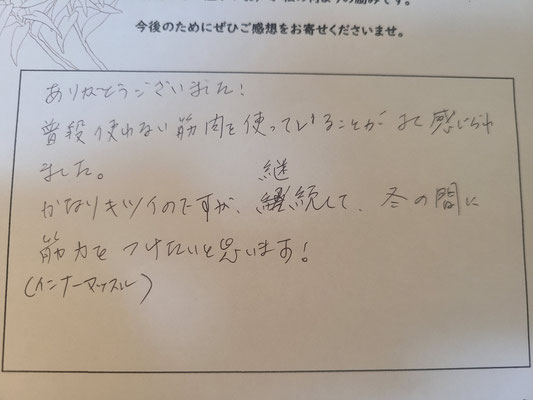 今後のためにぜひご感想をお寄せくださいませ。
ありがとうございました!
普段使わない筋肉を使っていることがよく感じられ
ました。
継
かなりキツイのですが、継続して、冬の間に
筋力をつけたいと思います!
(インナーマッスル)